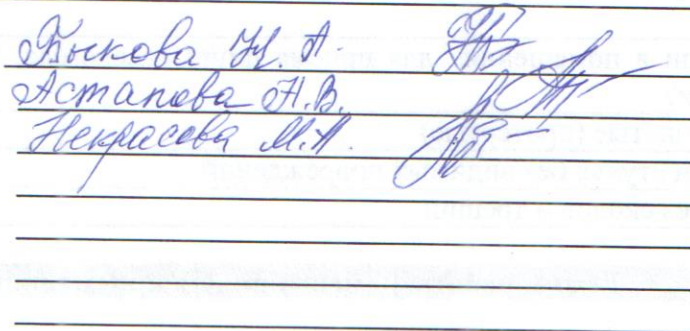 Быкова Н. А.
Астапова А.В.
Некрасова М.А.